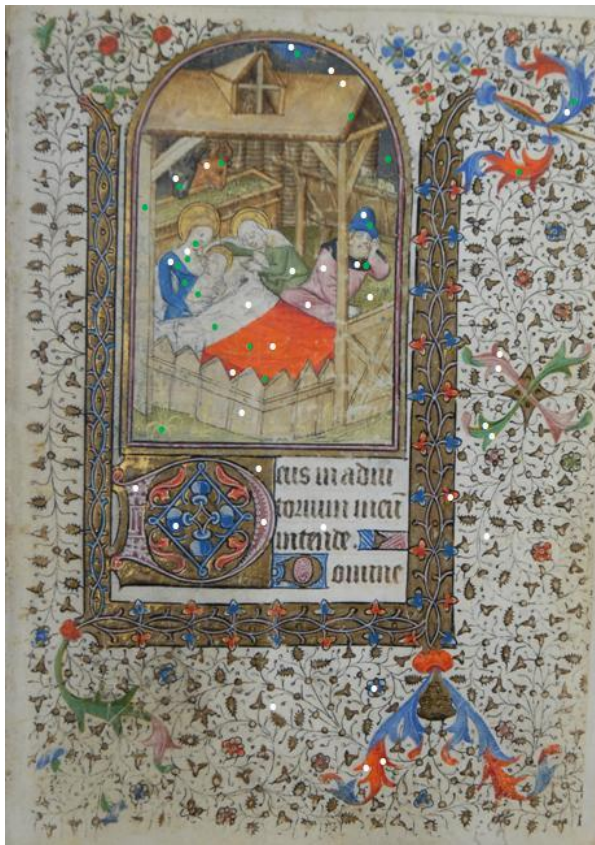 Deus in adiu
torium meū
intende.
Domine